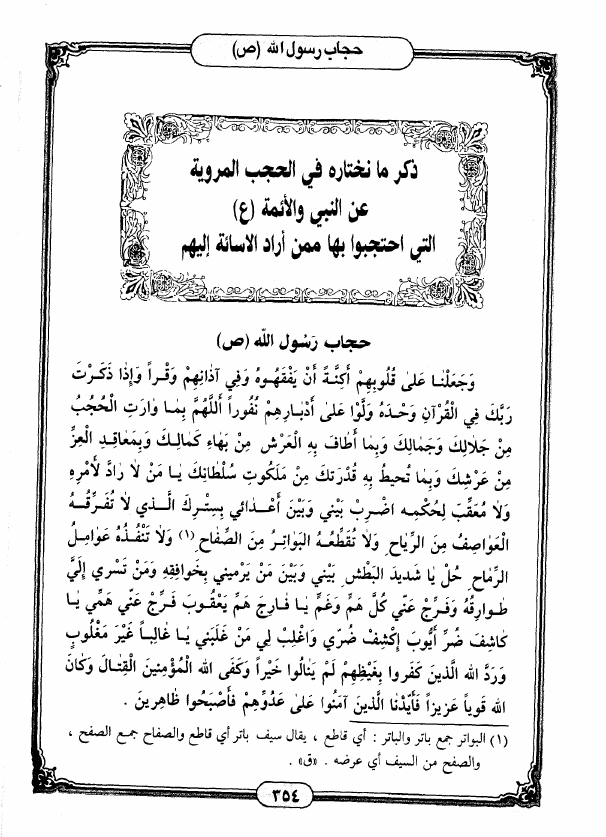 حجاب رسول الله (ص)
ذكر ما نختاره في الحجب المروية
عن النبي والأئمة (ع)
التي احتجبوا بها ممن أراد الاسائة إليهم
حجاب رَسُول اللّه (ص)
وَجَعَلْنٰا عَلىٰ قُلُوبِهِمْ أَكِنَّةً أَنْ يَفْقَهُـوهُ وَفِي آذانِهِمْ وَقْـراً وَإِذٰا ذَكَـرْتَ
رَبَّكَ فِي الْقُرْآنِ وَحْـدَهُ وَلَّوْا عَلىٰ أَدْبٰـارِهِمْ نُفُوراً أَللّٰهُمَّ بِمٰـا وٰارَتِ الْحُجُبُ
مِنْ جَلاٰلِكَ وَجَمٰالِكَ وَبِمٰا أَطٰافَ بِهِ الْعَرْشُ مِنْ بَهٰاءِ كَمٰالِـكَ وَبِمَعٰاقِـدِ الْعِزِّ
مِنْ عَرْشِكَ وَبِمٰا تُحيطُ بِهِ قُدْرَتُكَ مِنْ مَلَكُوتِ سُلْطٰانِكَ يٰـا مَنْ لاٰ رٰادَّ لأَمْرِهِ
وَلاٰ مُعَقِّبَ لِحُكْمِـهِ اضْرِبْ بَيْنِي وَبَيْنَ أَعْـدٰائي بِسِتْرِكَ الَّـذي لاٰ تُفَـرِّقُـهُ
الْعَوٰاصِفُ مِنَ الرِّيٰاحِ وَلاٰ تُقَطِّعُـهُ البَوٰاتِـرُ مِنَ الصِّفٰاحِ (١) وَلاٰ تَنْفُـذُهُ عَوٰامِلُ
الرِّمٰاحِ حُلْ يٰا شَديدَ البَطْشِ بَيْني وَبَيْنَ مَنْ يَرْميني بِخَوٰافِقِهِ وَمَنْ تَسْري إِلَيَّ
طَوٰارِقُهُ وَفَرِّجْ عَنّي كُلَّ هَمٍّ وَغَمٍّ يٰا فٰـارِجَ هَمِّ يَعْقُـوبَ فَرِّجْ عَنّي هَمّي يٰـا
كٰاشِفَ ضُرِّ أَيُّوبَ إِكْشِفْ ضُرّي وَاغْلِبْ لي مَنْ غَلَبَني يٰـا غٰالِبـاً غَيْرَ مَغْلُوبٍ
وَرَدَّ الله الَّذينَ كَفَروا بِغَيْظِهِمْ لَمْ يَنٰالُوا خَيْراً وَكَفَى الله الْمُؤْمِنينَ الْقِتٰالَ وَكٰانَ
الله قَوِياً عَزيزاً فَأَيَّدْنٰا الَّذينَ آمَنُوا عَلىٰ عَدُوِّهِمْ فَأَصْبَحُوا ظٰاهِرينَ .
(١) البواتر جمع باتر والباتر : أي قاطع ، يقال سيف باتر أي قاطع والصفاح جمـع الصفح ،
والصفح من السيف أي عرضه . «ق» .
٣٥٤